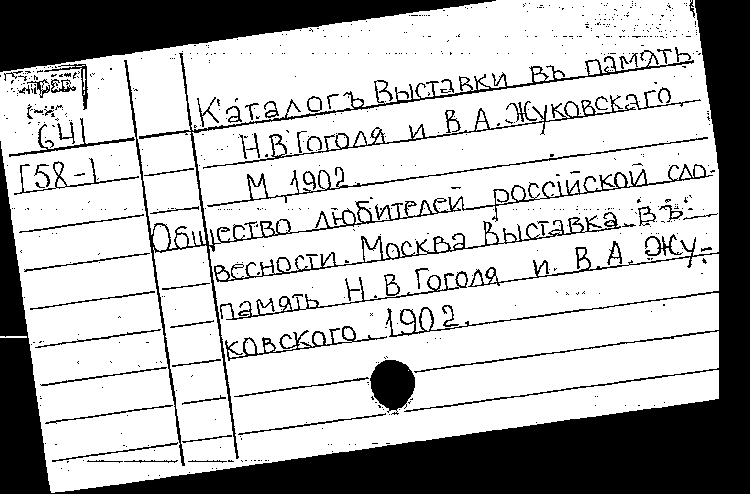 641
Г58-1
Каталогъ Выставки въ память
Н.В.Гоголя и В.А.Жуковскаго.
М. 1902.
Общество любителей россiйской сло-
весности. Москва Выставка въ
память Н.В.Гоголя и В.А.Жу-
ковского. 1902.